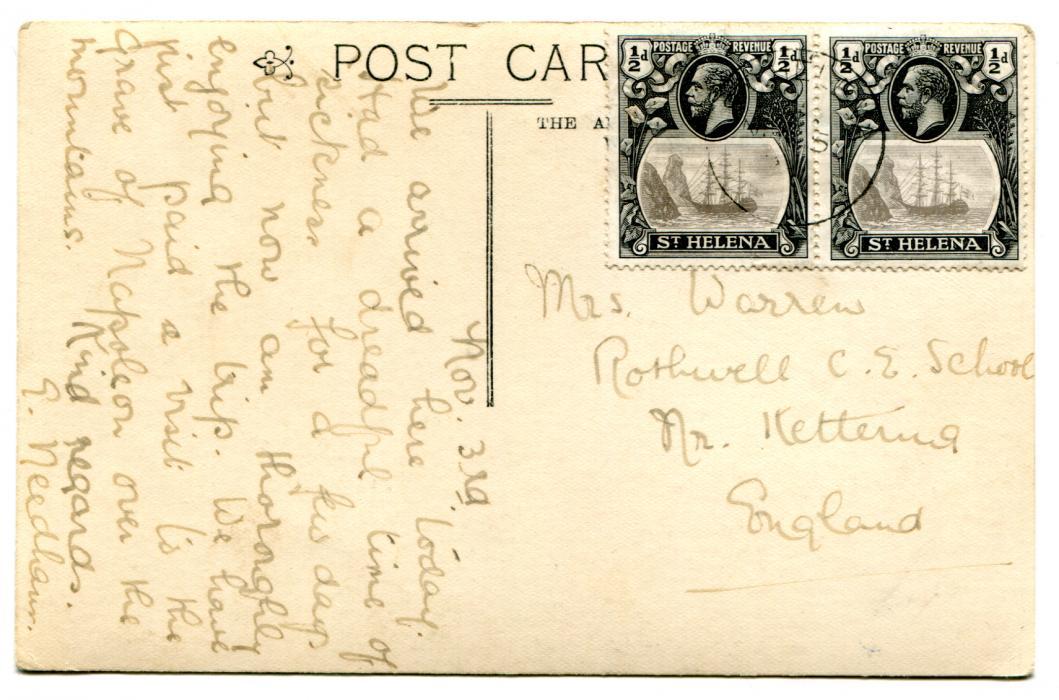 POST CAR
THE A
½d POSTAGE REVENUE ½d
ST HELENA
½d POSTAGE REVENUE ½d
ST HELENA
Nov. 3rd.
We arrived here today.
Had a dreadful time of
sickness for a few days
but now am thoroughly
enjoying the trip. We have
just paid a visit to the
grave of Napoleon over the
mountains.
Kind regards.
E. Needham.
Mrs. Warren
Rothwell C. E. School
Nr. Kettering
England